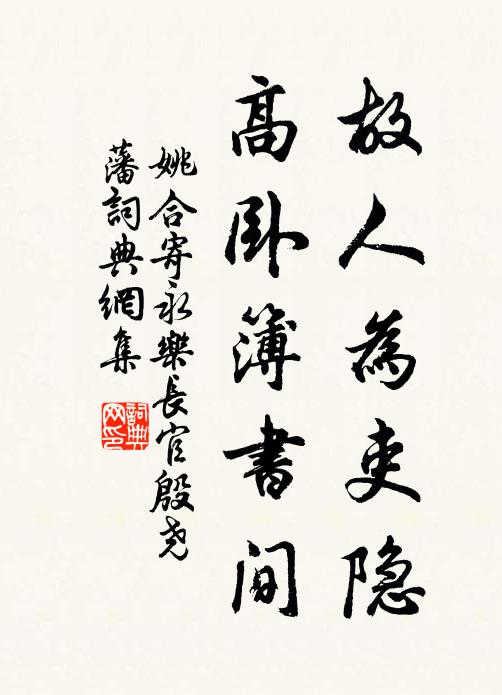 故人為吏隐
高卧簿書间
姚合寄永樂長官殷尧
藩詞典網集
詞典
网印